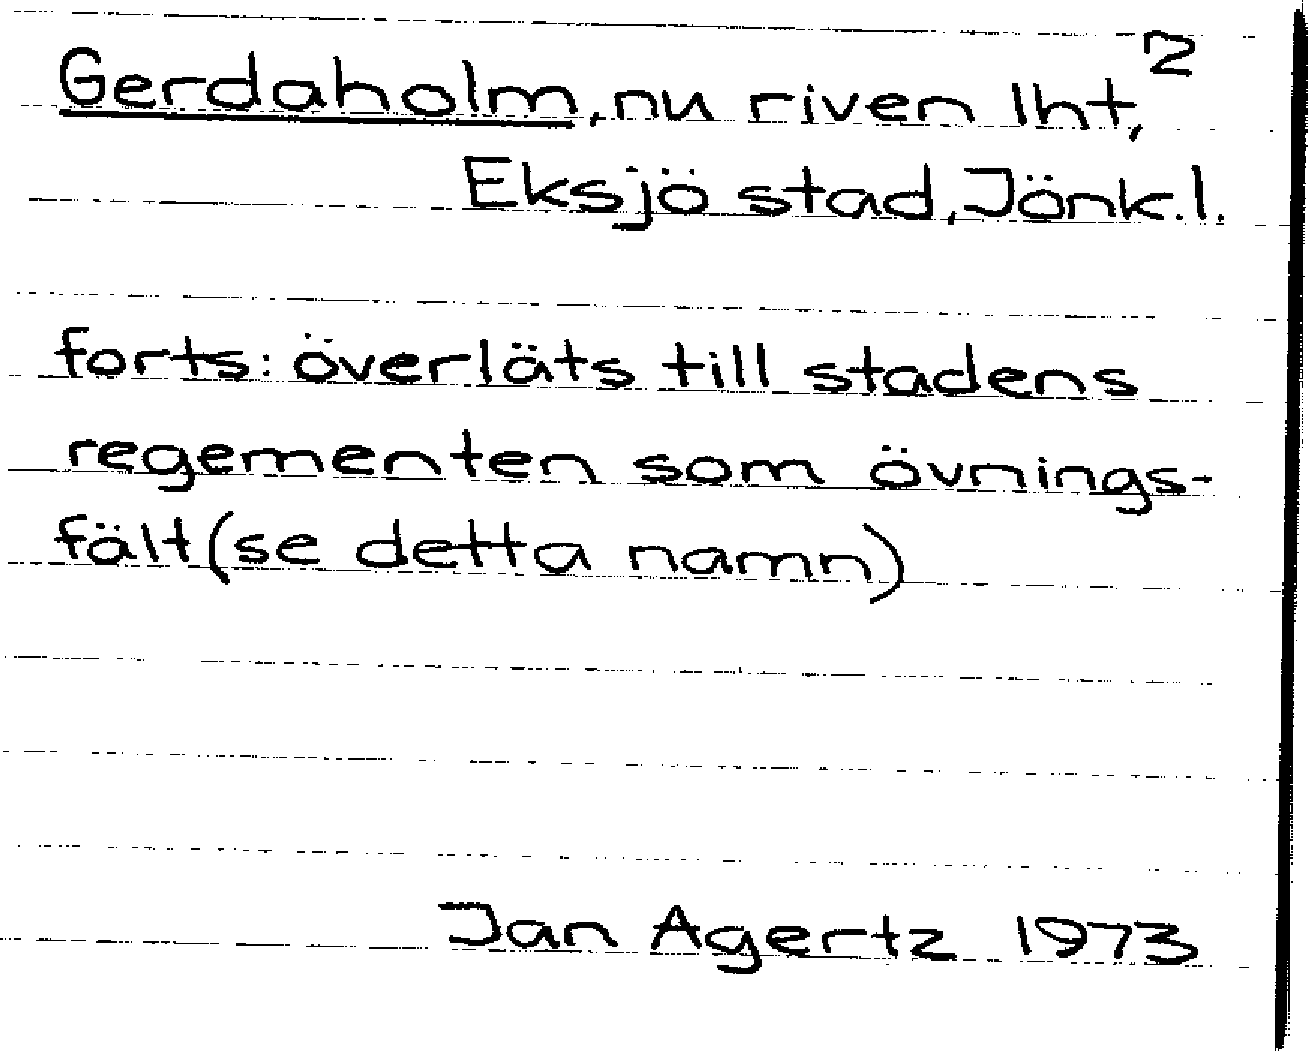 2
Gerdaholm, nu riven lht,
Eksjö stad, Jönk.l.
forts: överläts till stadens
regementen som övnings-
fält (se detta namn)
Jan Agertz 1973